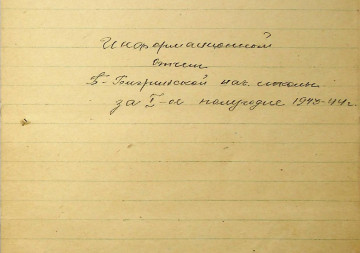 Информационном
отчет
Б-Бигринской нач. школы
за I-ое полугодие 1943-44 г